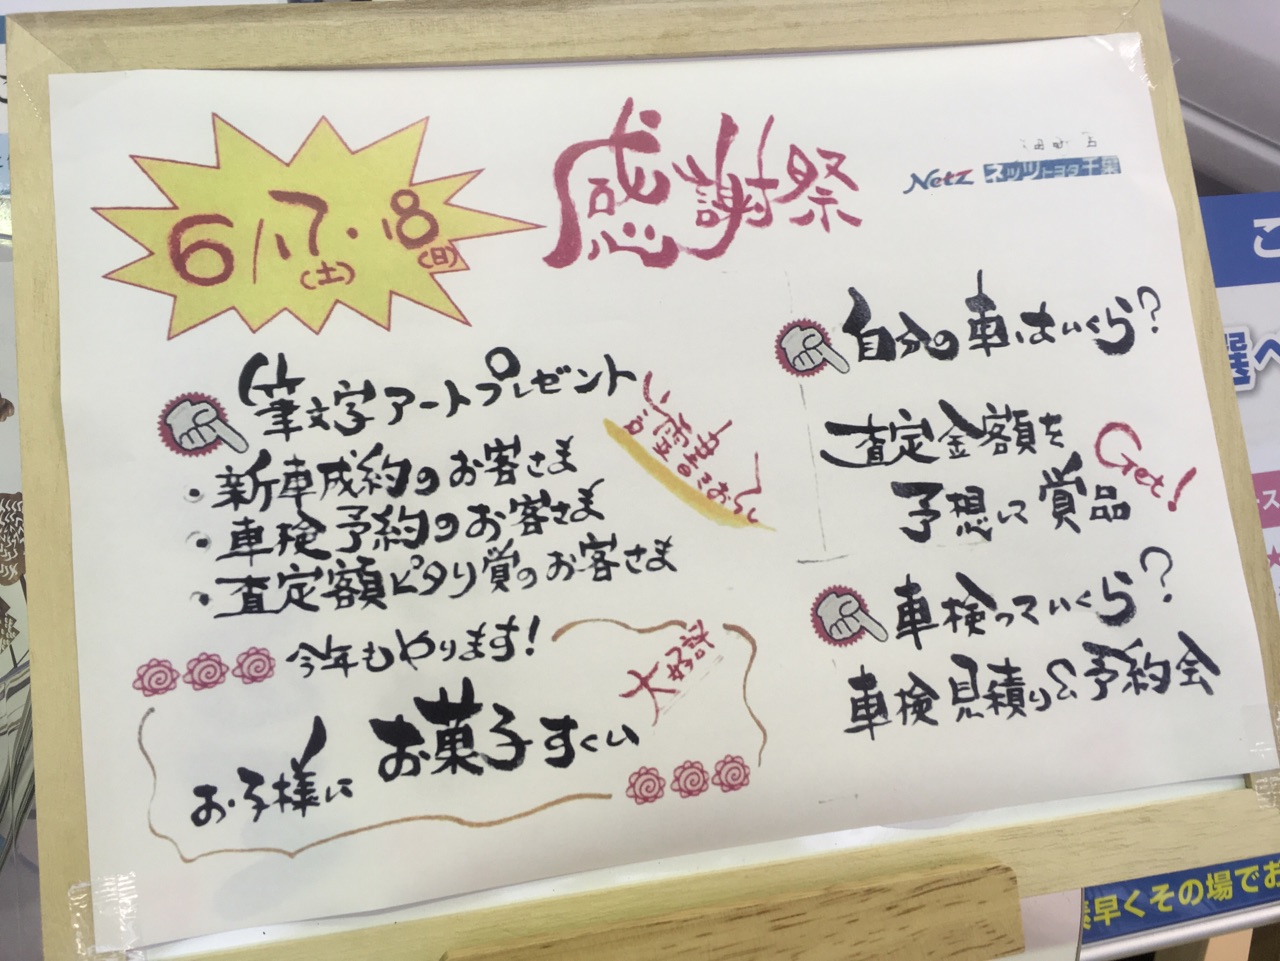 感謝祭
6/17・18
(土)
(日)
Netz ネッツトヨタ千葉
筆文字アートプレゼント
・新車成約のお客さま
・車検予約のお客さま
・査定額ピタリ賞のお客さま
今年もやります!
大好評
お子様に お菓子すくい
自分の車はいくら?
査定金額を
予想して賞品
Get!
車検っていくら?
車検見積り&予約会
早くその場でお